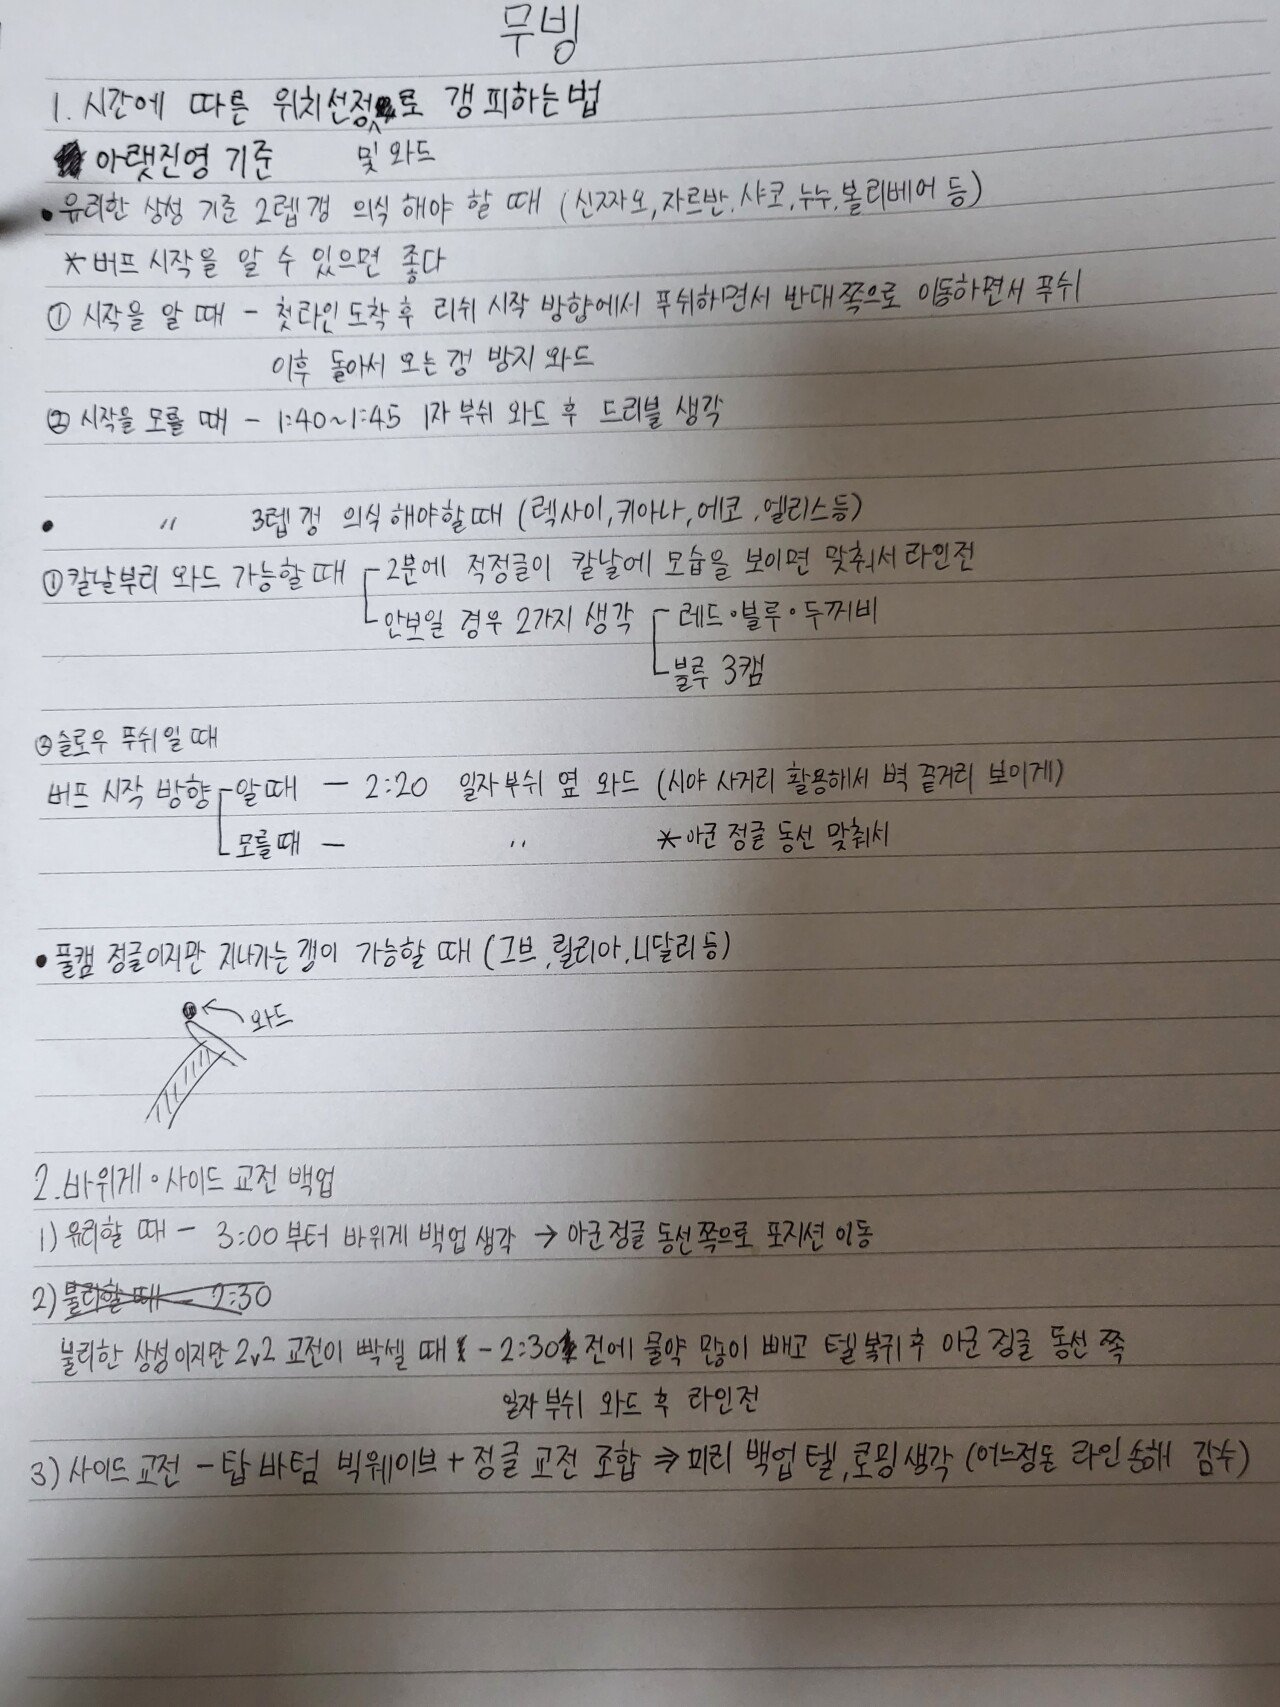 무빙
1. 시간에 따른 위치선정로 갱 피하는법
및 와드
아랫진영 기준
• 유리한 상성 기준 2렙갱 의식해야 할 때 (신짜오, 자르반, 샤코, 누누, 볼리베어 등)
* 버프 시작을 알 수 있으면 좋다
① 시작을 알 때 - 첫라인 도착 후 리쉬 시작 방향에서 푸쉬하면서 반대쪽으로 이동하면서 푸쉬
이후 돌아서 오는 갱 방지 와드
② 시작을 모를 때 - 1:40~1:45 1자 부쉬 와드 후 드리블 생각
• 〃 3렙갱 의식해야할때 (렉사이, 키아나, 에코, 엘리스등)
① 칼날부리 와드 가능할때 2분에 적정글이 칼날에 모습을 보이면 맞춰서 라인전
안보일 경우 2가지 생각 레드·블루·두꺼비
블루 3캠
② 슬로우 푸쉬일때
버프 시작 방향 알때 - 2:20 일자부쉬 옆 와드 (시야 사거리 활용해서 벽 끝거리 보이게)
모를때 - 〃 * 아군 정글 동선 맞춰서
• 풀캠 정글이지만 지나가는 갱이 가능할 때 (그브, 릴리아, 니달리 등)
와드
2. 바위게·사이드 교전 백업
1) 유리할 때 - 3:00부터 바위게 백업 생각 → 아군정글 동선쪽으로 포지션 이동
2) 불리할때 - 2:30
불리한 상성이지만 2v2 교전이 빡셀 때 - 2:30 전에 물약 많이 빼고 텔 복귀 후 아군 정글 동선 쪽
일자 부쉬 와드 후 라인전
3) 사이드 교전 - 탑 바텀 빅웨이브 + 정글 교전 조합 ⇒ 미리 백업 텔, 로밍 생각 (어느정돈 라인 손해 감수)